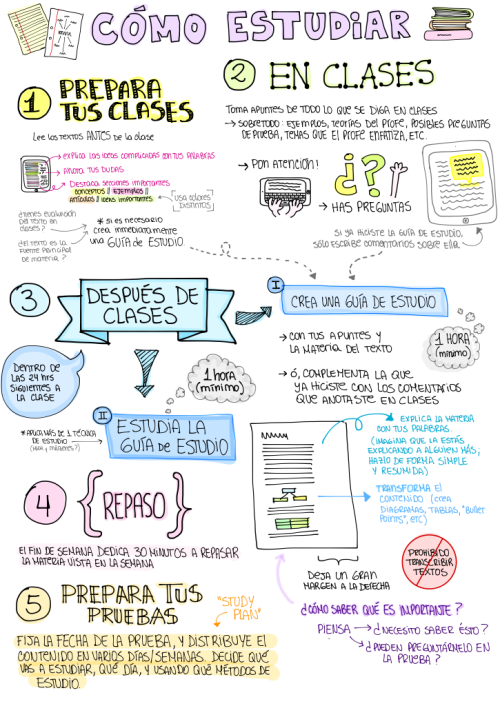 CÓMO ESTUDIAR
1 PREPARA
TUS CLASES
Lee los textos ANTES de la clase
→ explica las ideas complicadas con tus palabras
→ Anota tus dudas
→ Destaca secciones importantes
conceptos // ejemplos //
artículos // ideas importantes
usa colores
distintos
¿tienes evaluación
del texto en
clases?
¿el texto es la
fuente principal
de materia?
* si es necesario
crea inmediatamente
una GUÍA de ESTUDIO
2 EN CLASES
Toma apuntes de TODO lo que se diga en clases
→ sobretodo: ejemplos, teorías del profe, posibles preguntas
de prueba, temas que el profe enfatiza, etc.
→ PON ATENCIÓN!
¿?
→ HAS PREGUNTAS
Si ya hiciste la guía de estudio,
sólo escribe comentarios sobre ella
3 DESPUÉS DE
CLASES
DENTRO DE
LAS 24 hrs
SIGUIENTES A
LA CLASE
I
CREA UNA GUÍA DE ESTUDIO
→ CON TUS APUNTES Y
LA MATERIA DEL TEXTO
→ ó, COMPLEMENTA LA QUE
YA HICISTE CON LOS COMENTARIOS
QUE ANOTASTE EN CLASES
1 HORA
(mínimo)
1 hora
(mínimo)
II
ESTUDIA LA
GUÍA DE ESTUDIO
* APLICA MÁS DE 1 TÉCNICA
DE ESTUDIO
EXPLICA LA MATERIA
CON TUS PALABRAS.
(IMAGINA QUE LA ESTÁS
EXPLICANDO A ALGUIEN MÁS;
HAZLO DE FORMA SIMPLE
Y RESUMIDA)
TRANSFORMA EL
CONTENIDO (crea
DIAGRAMAS, TABLAS, "Bullet
Points", etc)
DEJA UN GRAN
MARGEN A LA DERECHA
PROHIBIDO
TRANSCRIBIR
TEXTOS
¿CÓMO SABER QUÉ ES IMPORTANTE?
PIENSA → ¿NECESITO SABER ÉSTO?
→ ¿PUEDEN PREGUNTÁRMELO EN
LA PRUEBA?
4 {REPASO}
EL FIN DE SEMANA DEDICA 30 MINUTOS A REPASAR
LA MATERIA VISTA EN LA SEMANA
5 PREPARA TUS
PRUEBAS
"STUDY
PLAN"
FIJA LA FECHA DE LA PRUEBA, Y DISTRIBUYE EL
CONTENIDO EN VARIOS DÍAS/SEMANAS. DECIDE QUÉ
VAS A ESTUDIAR, QUÉ DÍA, Y USANDO QUÉ MÉTODOS DE
ESTUDIO.